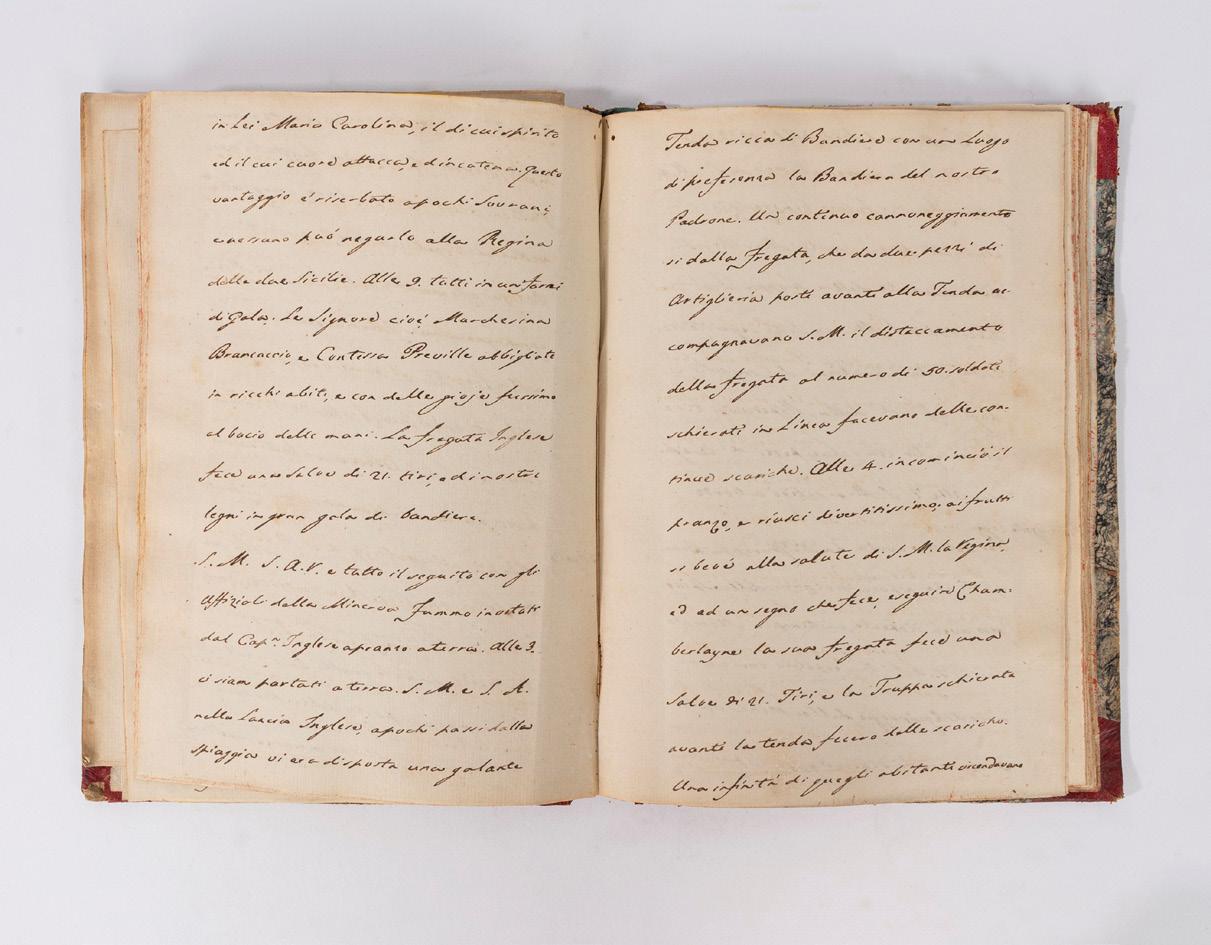 in Lei Maria Carolina, il di cui spirito
ed il cui cuore attacca, e d'incatena. Questo
vantaggio é riserbato a pochi Sovrani,
e nessuno può negarlo alla Regina
delle due Sicilie. Alle 9. tutti in un farsi
di Gala. Le Signore cioé Marchesina
Brancaccio, e Contessa Preville abbigliate
in ricchi abiti, e con delle gioje fursimo
al bacio delle mani. La fregata Inglese
fece una Salve di 21. tiri, ed i nostri
legni in gran gala di bandiere.
S. M. S. A. R. e tutto il seguito con gli
Uffizioli della Minerva fummo invitati
dal Cap.n Inglese a pranzo a terra. Alle 3.
ci siam portati a terra. S. M. e S. A.
nella Lancia Inglese, a pochi passi dalla
spiaggia vi era disposta una galante
Tenda ricca di Bandiere con un Luogo
di preferenza la Bandiera del nostro
Padrone. Un continuo cannoneggiamento
si dalla fregata, che da due pezzi di
Artiglieria posti avanti alla Tenda ac-
compagnavano S. M. il distaccamento
della fregata al numero di 50. soldati
schierati in Linea facevano delle con-
tinue scariche. Alle 4. incominciò il
pranzo, e riusci divertitissimo, ai frutti
si bevé alla salute di S. M. la Regina,
ed ad un segno che fece, eseguire Cham-
berlayne la sua fregata fece una
Salve di 21. Tiri, e la Truppa schierata
avanti la tenda fecero delle scariche.
Una infinità di quegli abitanti circondavano